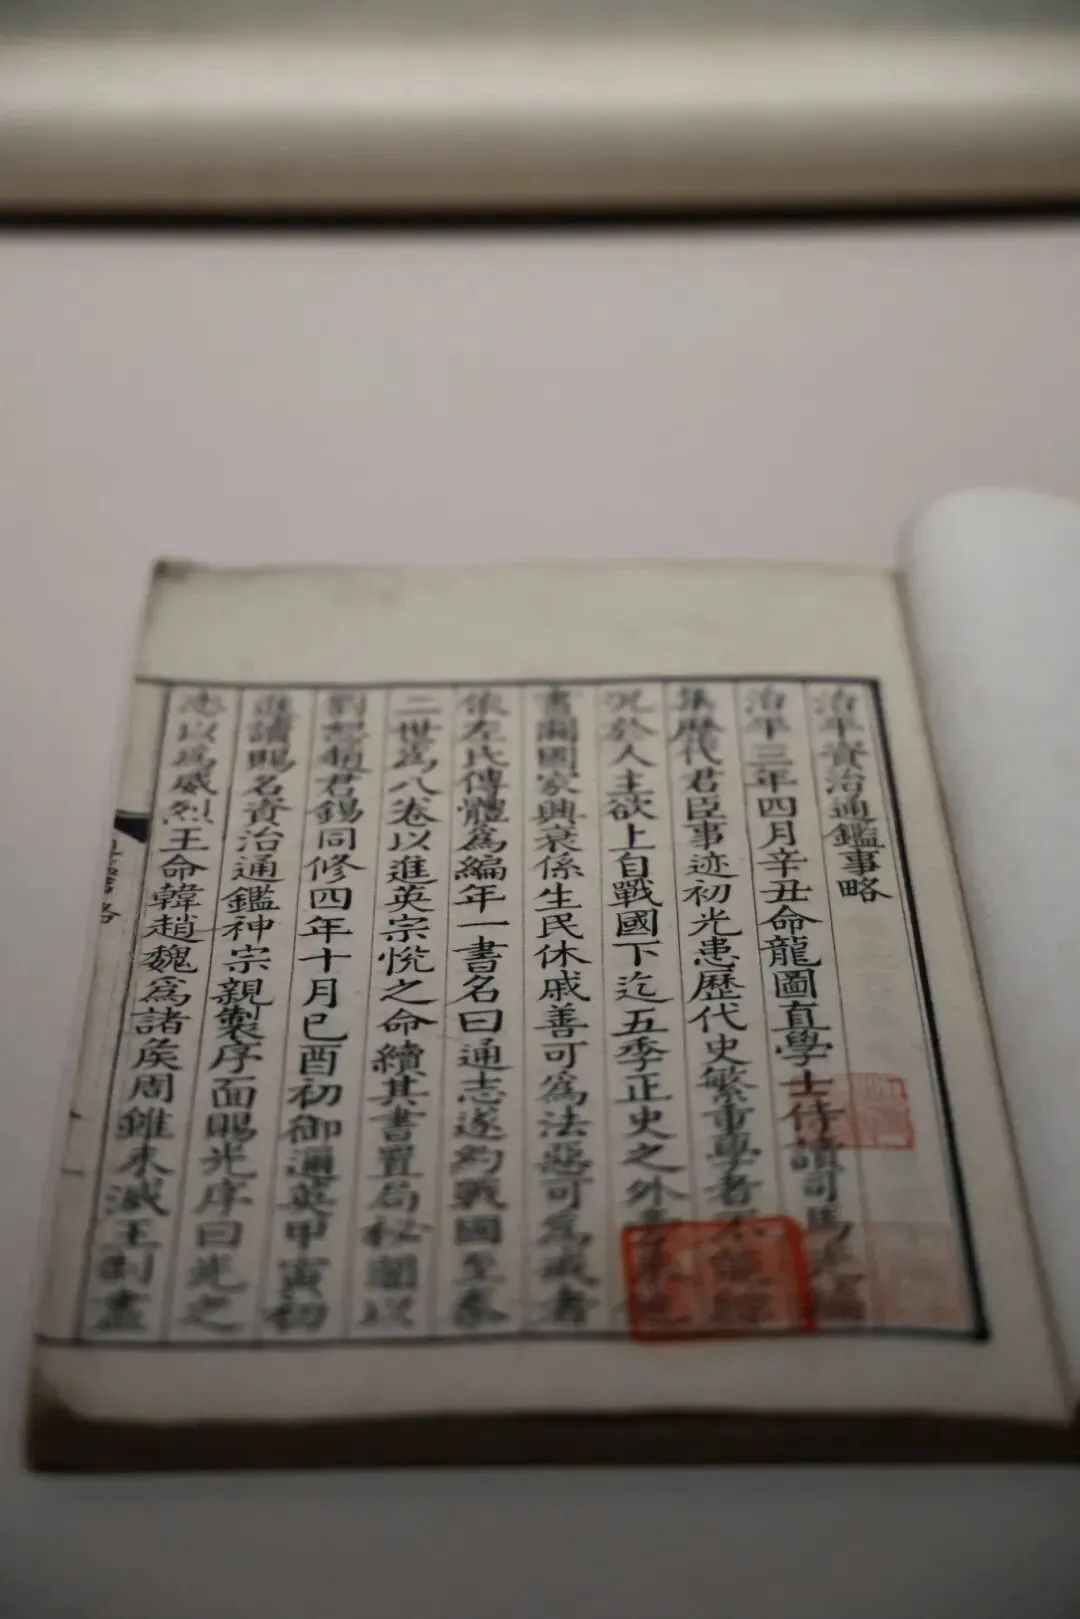 治平資治通鑑事略
治平三年四月辛丑命龍圖直學士侍讀司馬光編
集歷代君臣事迹初光患歷代史繁重學者不能綜
況於人主欲上自戰國下迄五季正史之外旁采他
書關國家興衰係生民休戚善可為法惡可為戒者
依左氏傳體爲編年一書名曰通志遂約戰國至秦
二世爲八卷以進英宗悅之命續其書置局秘閣以
劉恕趙君錫同修四年十月已酉初御邇英甲寅初
進讀賜名資治通鑑神宗親製序面賜光序曰光之
志以爲威烈王命韓趙魏爲諸矦周雖未滅王制盡